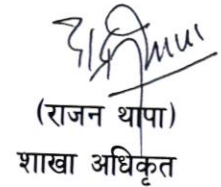 (राजन थापा)
शाखा अधिकृत